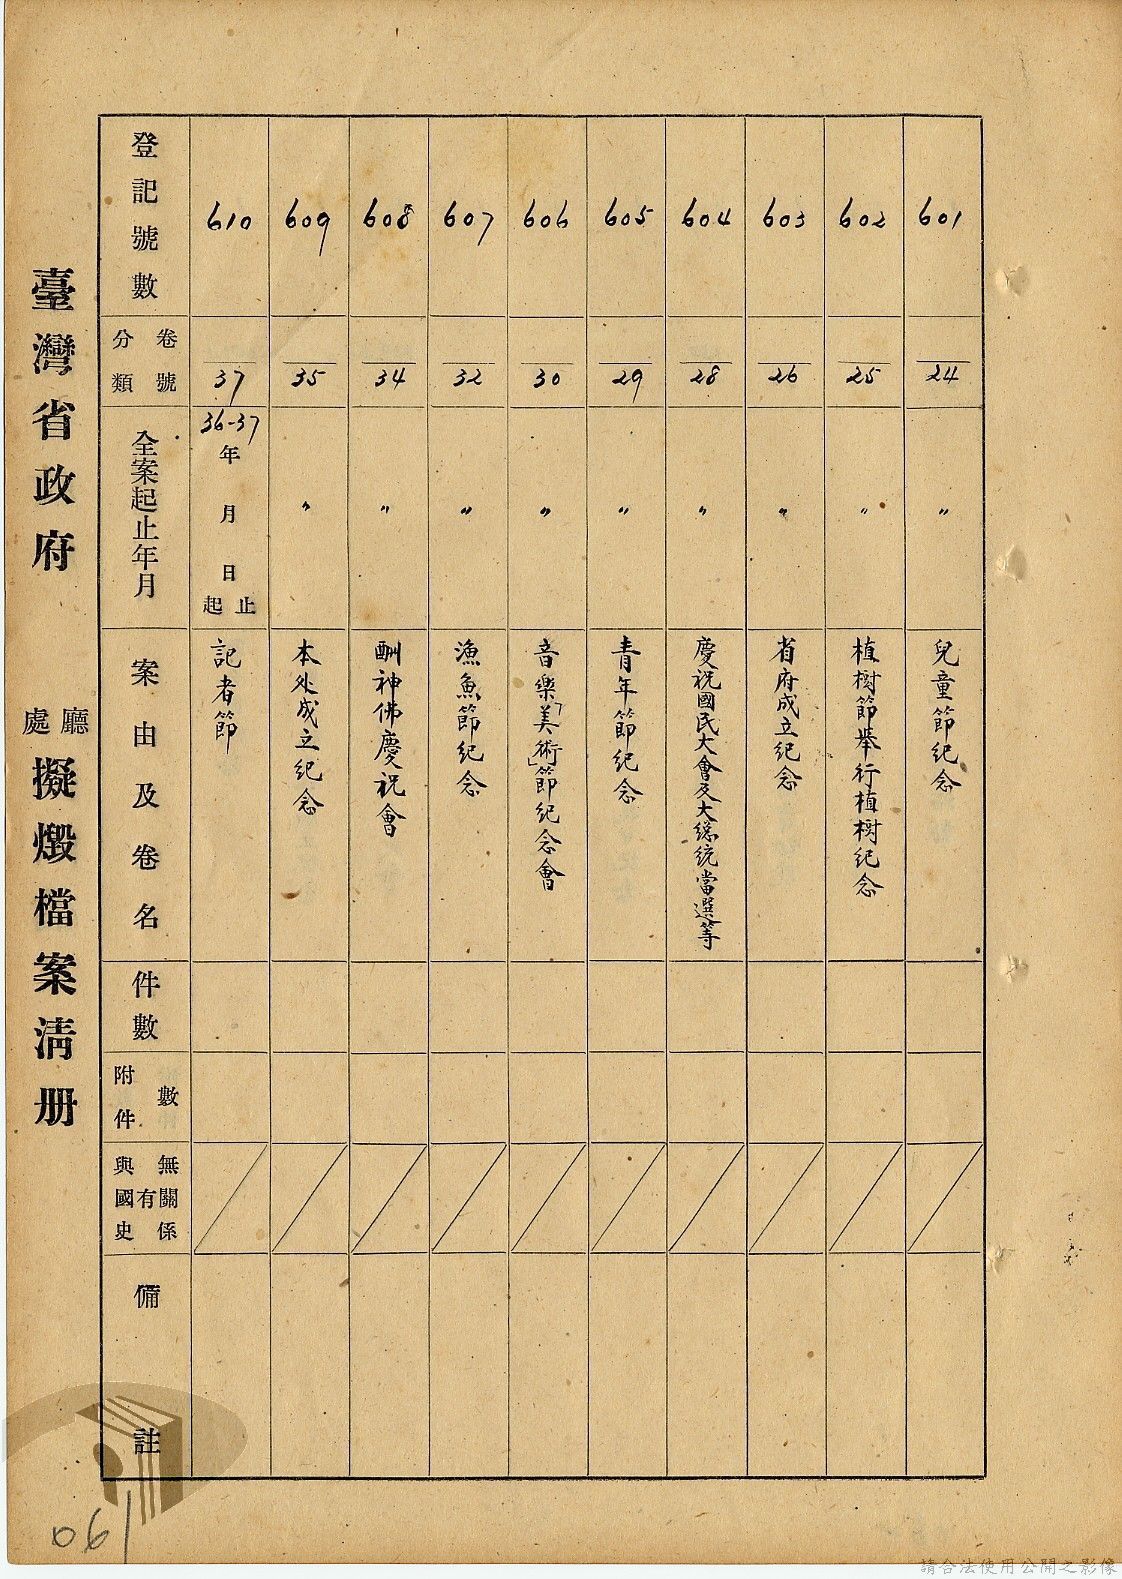 臺灣省政府 廳處 擬燬檔案清册
登記號數
分類 卷號
全案起止年月
案由及卷名
件數
附件數
與國史有無關係
備註
601
24
〃
兒童節紀念
602
25
〃
植樹節舉行植樹紀念
603
26
〃
省府成立紀念
604
28
〃
慶祝國民大會及大總統當選等
605
29
〃
青年節紀念
606
30
〃
音樂「美術」節紀念會
607
32
〃
漁魚節紀念
608
34
〃
酬神佛慶祝會
609
35
〃
本处成立紀念
610
37
36-37年 月 日 起止
記者節
061
請合法使用公開之影像